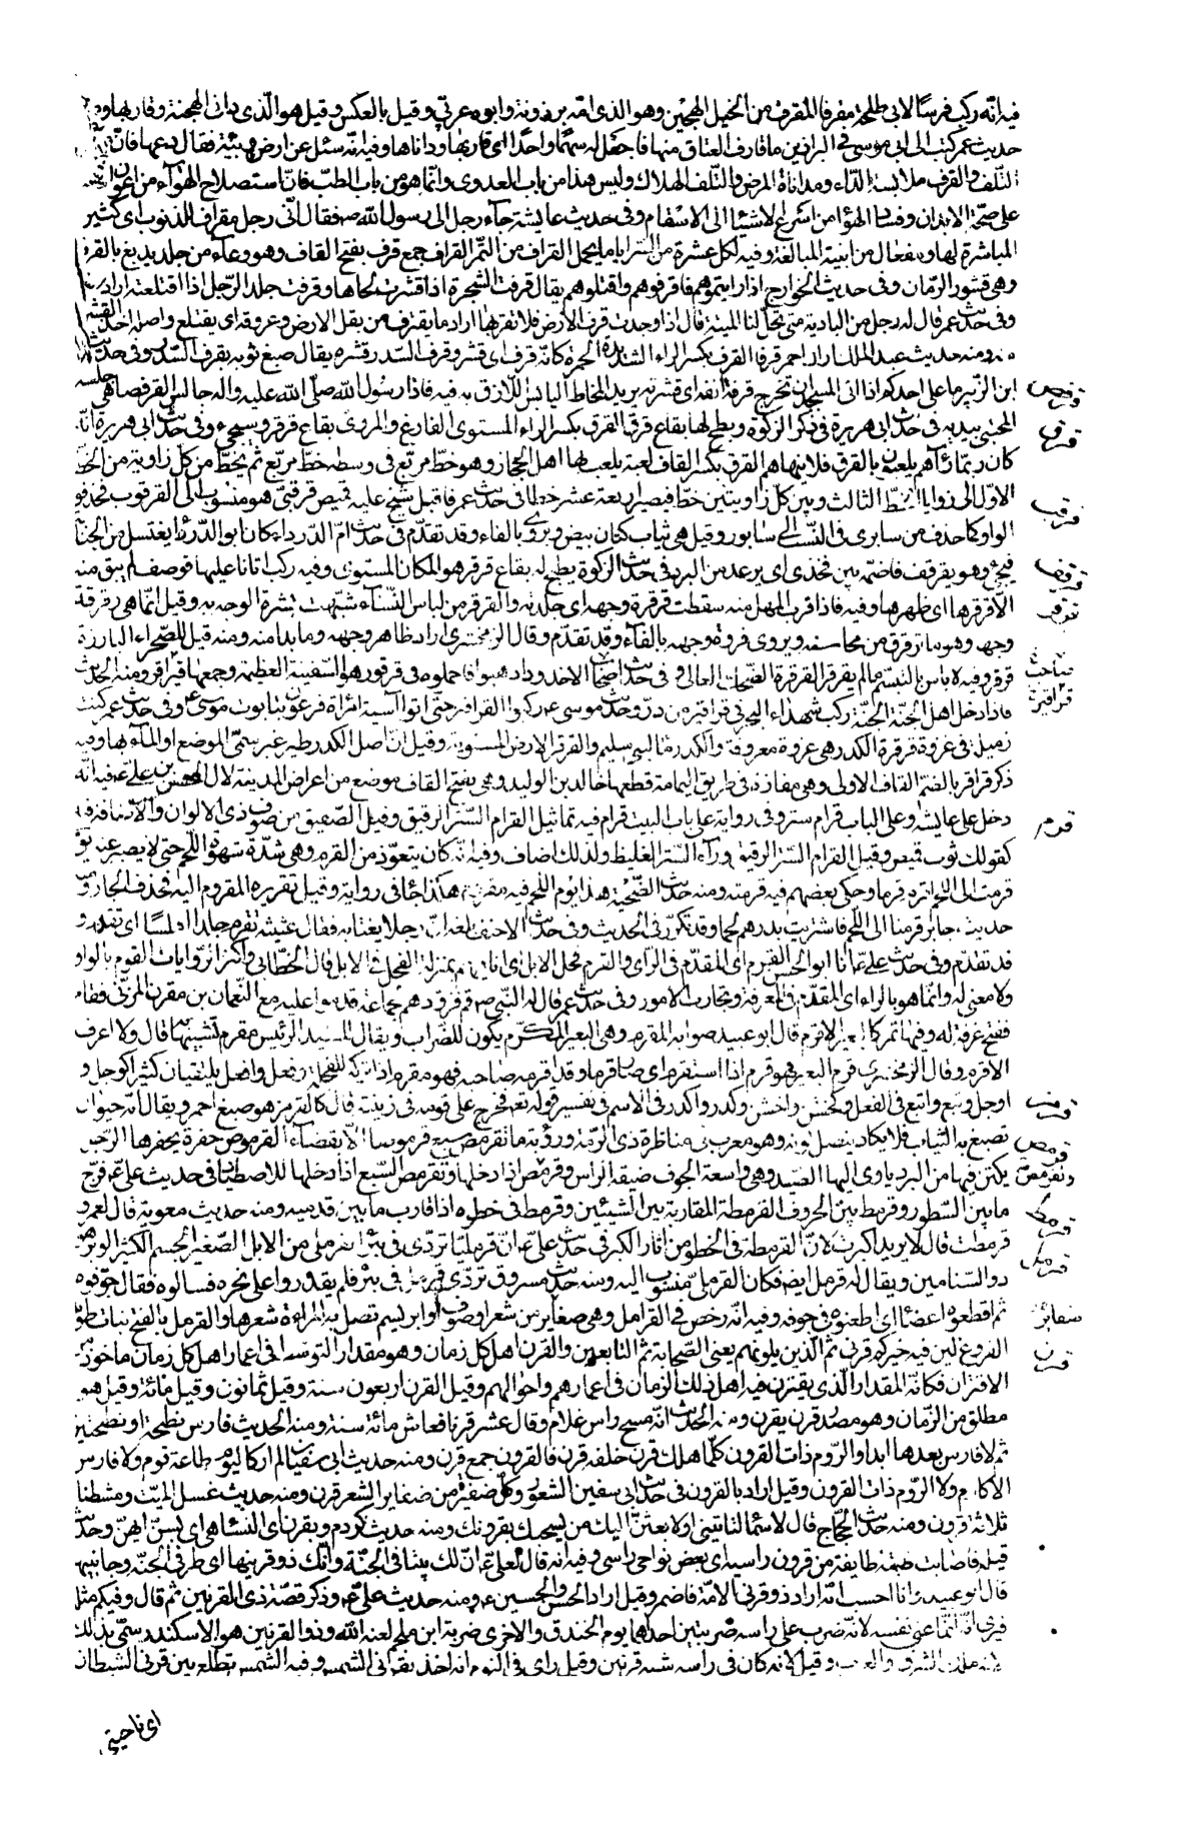 فيه انّه ركب فرسًا لابى طلحة مقرفا المقرف من الخيل الهجين وهو الذى امّه برذونة وابوه عربّى وقيل بالعكس وقيل هو الّذى دانى الهجنة وقاربها ومنه
حديث عمر كتب الى ابى موسى فى البراذين ما قارف العتاق منها فاجعل له سهمًا واحدًا اى قاربها وداناها وفيه انّه سئل عن ارض وبيئة فقال دعها فانّ من القرف
التّلف القرف ملابسة الدّاء ومداناة المرض والتّلف الهلاك وليس هذا من باب العدوى وانّما هو من باب الطبّ فانّ استصلاح الهوآء من اعون الاشياء
على صحّة الابدان وفساد الهوآء من اسرع الاشيآء الى الاسقام وفى حديث عايشة جآء رجل الى رسول الله صم فقال انّى رجل مقراف للذنوب اى كثير
المباشرة لها ومفعال من ابنية المبالغة وفيه لكل عشرة من السّرايا ما يحمل القراف من التّمر القراف جمع قرف بفتح القاف وهو وعآء من جلد يدبغ بالقرفة
وهى قشور الرّمان وفى حديث الخوارج اذا رايتموهم فاقرفوهم واقتلوهم يقال قرفت الشجرة اذا قشرت لحاها وقرفت جلد الرّجل اذا اقتلعته اراد استاصلوهم
وفى حديث عمر قال له رجل من البادية متى تحلّ لنا الميتة قال اذا وجدت قرف الارض فلا تقربها اراد ما يقترف من بقل الارض وعروقه اى يقتلع واصله اخذ القشر
منه ومنه حديث عبد الملك اراد احمر قرفا القرف بكسر الراء الشديد الحمرة كانّه قرف اى قشر وقرف السّدر قشره يقال صبغ ثوبه بقرف السّدر وفى حديث
قرفص ابن الزّبير ما على احدكم اذا اتى المسجد ان يخرج قرفة انفه اى قشرته يريد المخاط اليابس اللازق به فيه فاذا رسول الله صلّى الله عليه واله جالس القرفصا هى جلسة
قرق المحتبى بيديه فى حديث ابى هريرة فى ذكر الزكوة وبطح لها بقاع قرق القرق بكسر الراء المستوى الفارغ والمروى بقاع قرقر وسيجىء وفى حديث ابى هريرة انّه
كان ربّما رآهم يلعبون بالقرق فلا ينهاهم القرق بكسر القاف لعبة يلعب بها اهل الحجاز وهو خط مربّع فى وسطه خطّ مربّع ثم يخطّ من كل زاوية من الخطّ
قرقب الاوّل الى زوايا الخطّ الثالث وبين كل زاويتين خطّ فيصير اربعة عشر خطا فى حديث عمر فاقبل شيخ عليه قميص قرقبىّ هو منسوب الى القرقوب فحذف
الواو كما حذف من سابرى فى النّسب الى سابور وقيل هى ثياب كتّان بيض ويروى بالفاء وقد تقدّم فى حديث امّ الدّرداء كان ابو الدّرداء يغتسل من الجنابة
قرقف فيجىء وهو يقرقف فاضمّه بين فخذى اى يرعد من البرد فى حديث الزكوة بطح له بقاع قرقر هو المكان المستوى وفيه ركب اتانا عليها قرصف لم يبق منه
الّا قرقرها اى ظهرها وفيه فاذا قرب المهل منه سقطت قرقرة وجهه اى جلدته والقرقر من لباس النّسآء شبّهت بشرة الوجه به وقيل انّما هى رقرقة
وجهه وهو ما ترقرق من محاسنه ويروى فروة وجهه بالفآء وقد تقدّم وقال الزمخشرى اراد ظاهر وجهه وما بدا منه ومنه قيل للصّحراء البارزة
قرقر وفيه لا باس بالتبسّم ما لم يقرقر القرقرة الضحك العالى وفى حديث اصحاب الاخدود اذهبوا فاحملوه فى قرقور هو السّفينة العظيمة وجمعها قراقير ومنه الحديث
قراقير فاذا دخل اهل الجنّة الجنّة ركب شهداء البحر فى قراقير من درّ وحديث موسى ع ركبوا القراقير حتّى اتوا آسية امرأة فرعون بتابوت موسى ع وفى حديث عمر كنت
زميله فى غزوة قرقرة الكدر هى غزوة معروفة والكدر مآء لبنى سليم والقرقر الارض المستوية وقيل انّ اصل الكدر طير غبر سمّى الموضع او المآء بها وفيه
ذكر قراقر بالضمّ القاف الاولى وهى مفازة فى طريق اليمامة قطعها خالد بن الوليد وهى بفتح القاف موضع من اعراض المدينة لال الحسن بن على ع فيه انّه
قرم دخل على عايشة وعلى الباب قرام ستر وفى رواية على باب البيت قرام فيه تماثيل القرام السّتر الرقيق وقيل الصّفيق من صوف ذى الالوان والاضافة فيه
كقولك ثوب قميص وقيل القرام السّتر الرقيق ورآء السّتر الغليظ ولذلك اضاف وفيه انّه كان يتعوّذ من القرم وهى شدّة شهوة اللّحم حتّى لا يصبر عنه يق
قرمت الى اللحم اقرم قرما وحكى بعضهم فيه قرمته ومنه حديث الضّحيّة هذا يوم اللّحم فيه مقروم هكذا جا فى رواية وقيل تقديره المقروم اليه فحذف الجار وَ
حديث جابر قرمنا الى اللّحم فاشتريت بدرهم لحما وقد تكرّر فى الحديث وفى حديث الاحنف بلغه انّ رجلا يغتابه فقال عثيثة تقرم جلدا املسًا اى تقرضه و
قد تقدّم وفى حديث علىّ ع انا ابو الحسن القرم اى المقدّم فى الرّاى والقرم فحل الابل اى انا فيهم بمنزلة الفحل فى الابل قال الخطّابى واكثر الرّوايات القوم بالواو
ولا معنى له وانّما هو بالراء اى المقدّم فى المعرفة وتجارب الامور وفى حديث عمر قال له النّبى صم قم فزوّدهم لجماعة قدموا عليه مع النّعمان بن مقرن المزنّى فقام
ففتح غرفة له وفيها تمر كالبعير الاقرم قال ابو عبيد صوابه المقرم وهى البعير المكرم يكون للضّراب ويقال للسّيد الرّئيس مقرم تشبيهًا به قال ولا اعرف
الاقرم وقال الزمخشرى قرم البعير فهو قرم اذا استقرم اى صار قرما وقد اقرمه صاحبه فهو مقرم اذا تركه للفحلة وفعل وافعل يلتقيان كثيرا كوجل و
قرمز اوجل وتبع واتبع فى الفعل وكخشن واخشن وكدر واكدر فى الاسم فى تفسير قوله تعـ فخرج على قومه فى زينته قال كالقرمز هو صبغ احمر ويقال انّه حيوان
قرمص تصبغ به الثياب فلا يكاد ينصل لونه وهو معرب فى مناظرة ذى الرّمّة ورؤبة ما تقرمص سبع قرموصا الّا بقضآء القرموص حفرة يحفرها الرّجل
وتقرمص يكتن فيها من البرد وياوى اليها الصّيد وهى واسعة الجوف ضيقة الراس وقرمص اذا دخلها وتقرمص السّبع اذا دخلها للاصطياد فى حديث على ع فرّج
قرمط ما بين السّطور وقرمط بين الحروف القرمطة المقاربة بين الشيئين وقرمط فى خطوه اذا قارب ما بين قدميه ومنه حديث معوية قال لعمرو
قرمل قرمطت قال لا يريد اكبرت لانّ القرمطة فى الخطو من اثار الكبر فى حديث على ع انّ قرمليّا تردّى فى بئر القرملى من الابل الصّغير الجسم الكثير الوبر وهو
ذو السّنامين ويقال له قرمل ايضا فكان القرملى منسوب اليه ومنه حديث مسروق تردّى قرمل فى بئر فلم يقدروا على نحره فسالوه فقال جوّفوه
ضفائر ثم اقطعوه اعضآء اى اطعنوه فى جوفه وفيه انّه رخص فى القرامل وهى صفاير من شعر او صوف او ابريسم تصل به المراة شعرها والقرمل بالفتح نبات طويل
قرن الفروع لين فيه خيركم قرنى ثم الّذين يلونهم يعنى الصّحابة ثم التابعين والقرن اهل كل زمان وهو مقدار التوسّط فى اعمار اهل كل زمان ماخوذ من
الاقتران فكانّه المقدار الّذى يقترن فيه اهل ذلك الزمان فى اعمارهم واحوالهم وقيل القرن اربعون سنة وقيل ثمانون وقيل مائة وقيل هو
مطلق من الزّمان وهو مصدر قرن يقرن ومنه الحديث انّه مسح راس غلام وقال عش قرنا فعاش مائة سنة ومنه الحديث فارس نطحة او نطحتين
ثم لا فارس بعدها ابدا والرّوم ذات القرون كلّما هلك قرن خلفه قرن فالقرون جمع قرن ومنه حديث ابى سفيان لم ار كاليوم طاعة قوم ولا فارس
الاكارم ولا الرّوم ذات القرون وقيل اراد بالقرون فى حديث ابى سفين الشعور وكلّ ضفيرة من ضفاير الشعر قرن ومنه حديث غسل الميّت ومشطنا
ثلاثة قرون ومنه حديث الحجّاج قال لاسمآء لتاتينى او لابعثنّ اليك من يسحبك بقرونك ومنه حديث كردم وبقرن اىّ النّسآء هى اى بسنّ ايّهنّ وحديث
قيلة فاصابت ظبته طايفة من قرون راسيه اى بعض نواحى راسى وفيه انه قال لعلى ع انّ لك بيتا فى الجنّة وانّك ذو قرنيها اى طرفى الجنّة وجانبيها
قال ابو عبيد وانا احسب انّه اراد ذو قرنى الامّة فاضمر وقيل اراد الحسن والحسين ع ومنه حديث على ع وذكر قصّة ذى القرنين ثم قال وفيكم مثله
فيرى انّه انّما عنى نفسه لانّه ضرب على راسه ضربتين احداهما يوم الخندق والاخرى ضربة ابن ملجم لعنه الله وذو القرنين هو الاسكندر سمّى بذلك
لانه ملك الشرق والغرب وقيل لانه كان فى راسه شبه قرنين وقيل راى فى النوم انه اخذ بقرنى الشمس وفيه الشمس تطلع بين قرنى الشيطان
اى ناحيتى